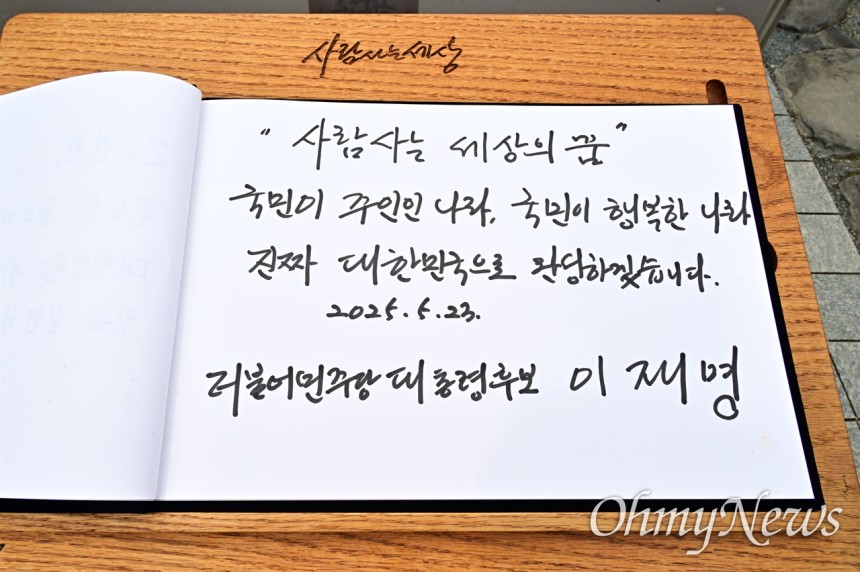 사람사는세상
" 사람사는 세상의 꿈 "
국민이 주인인 나라, 국민이 행복한 나라
진짜 대한민국으로 완성하겠습니다.
2025. 5. 23.
더불어민주당 대통령후보 이재명
OhmyNews